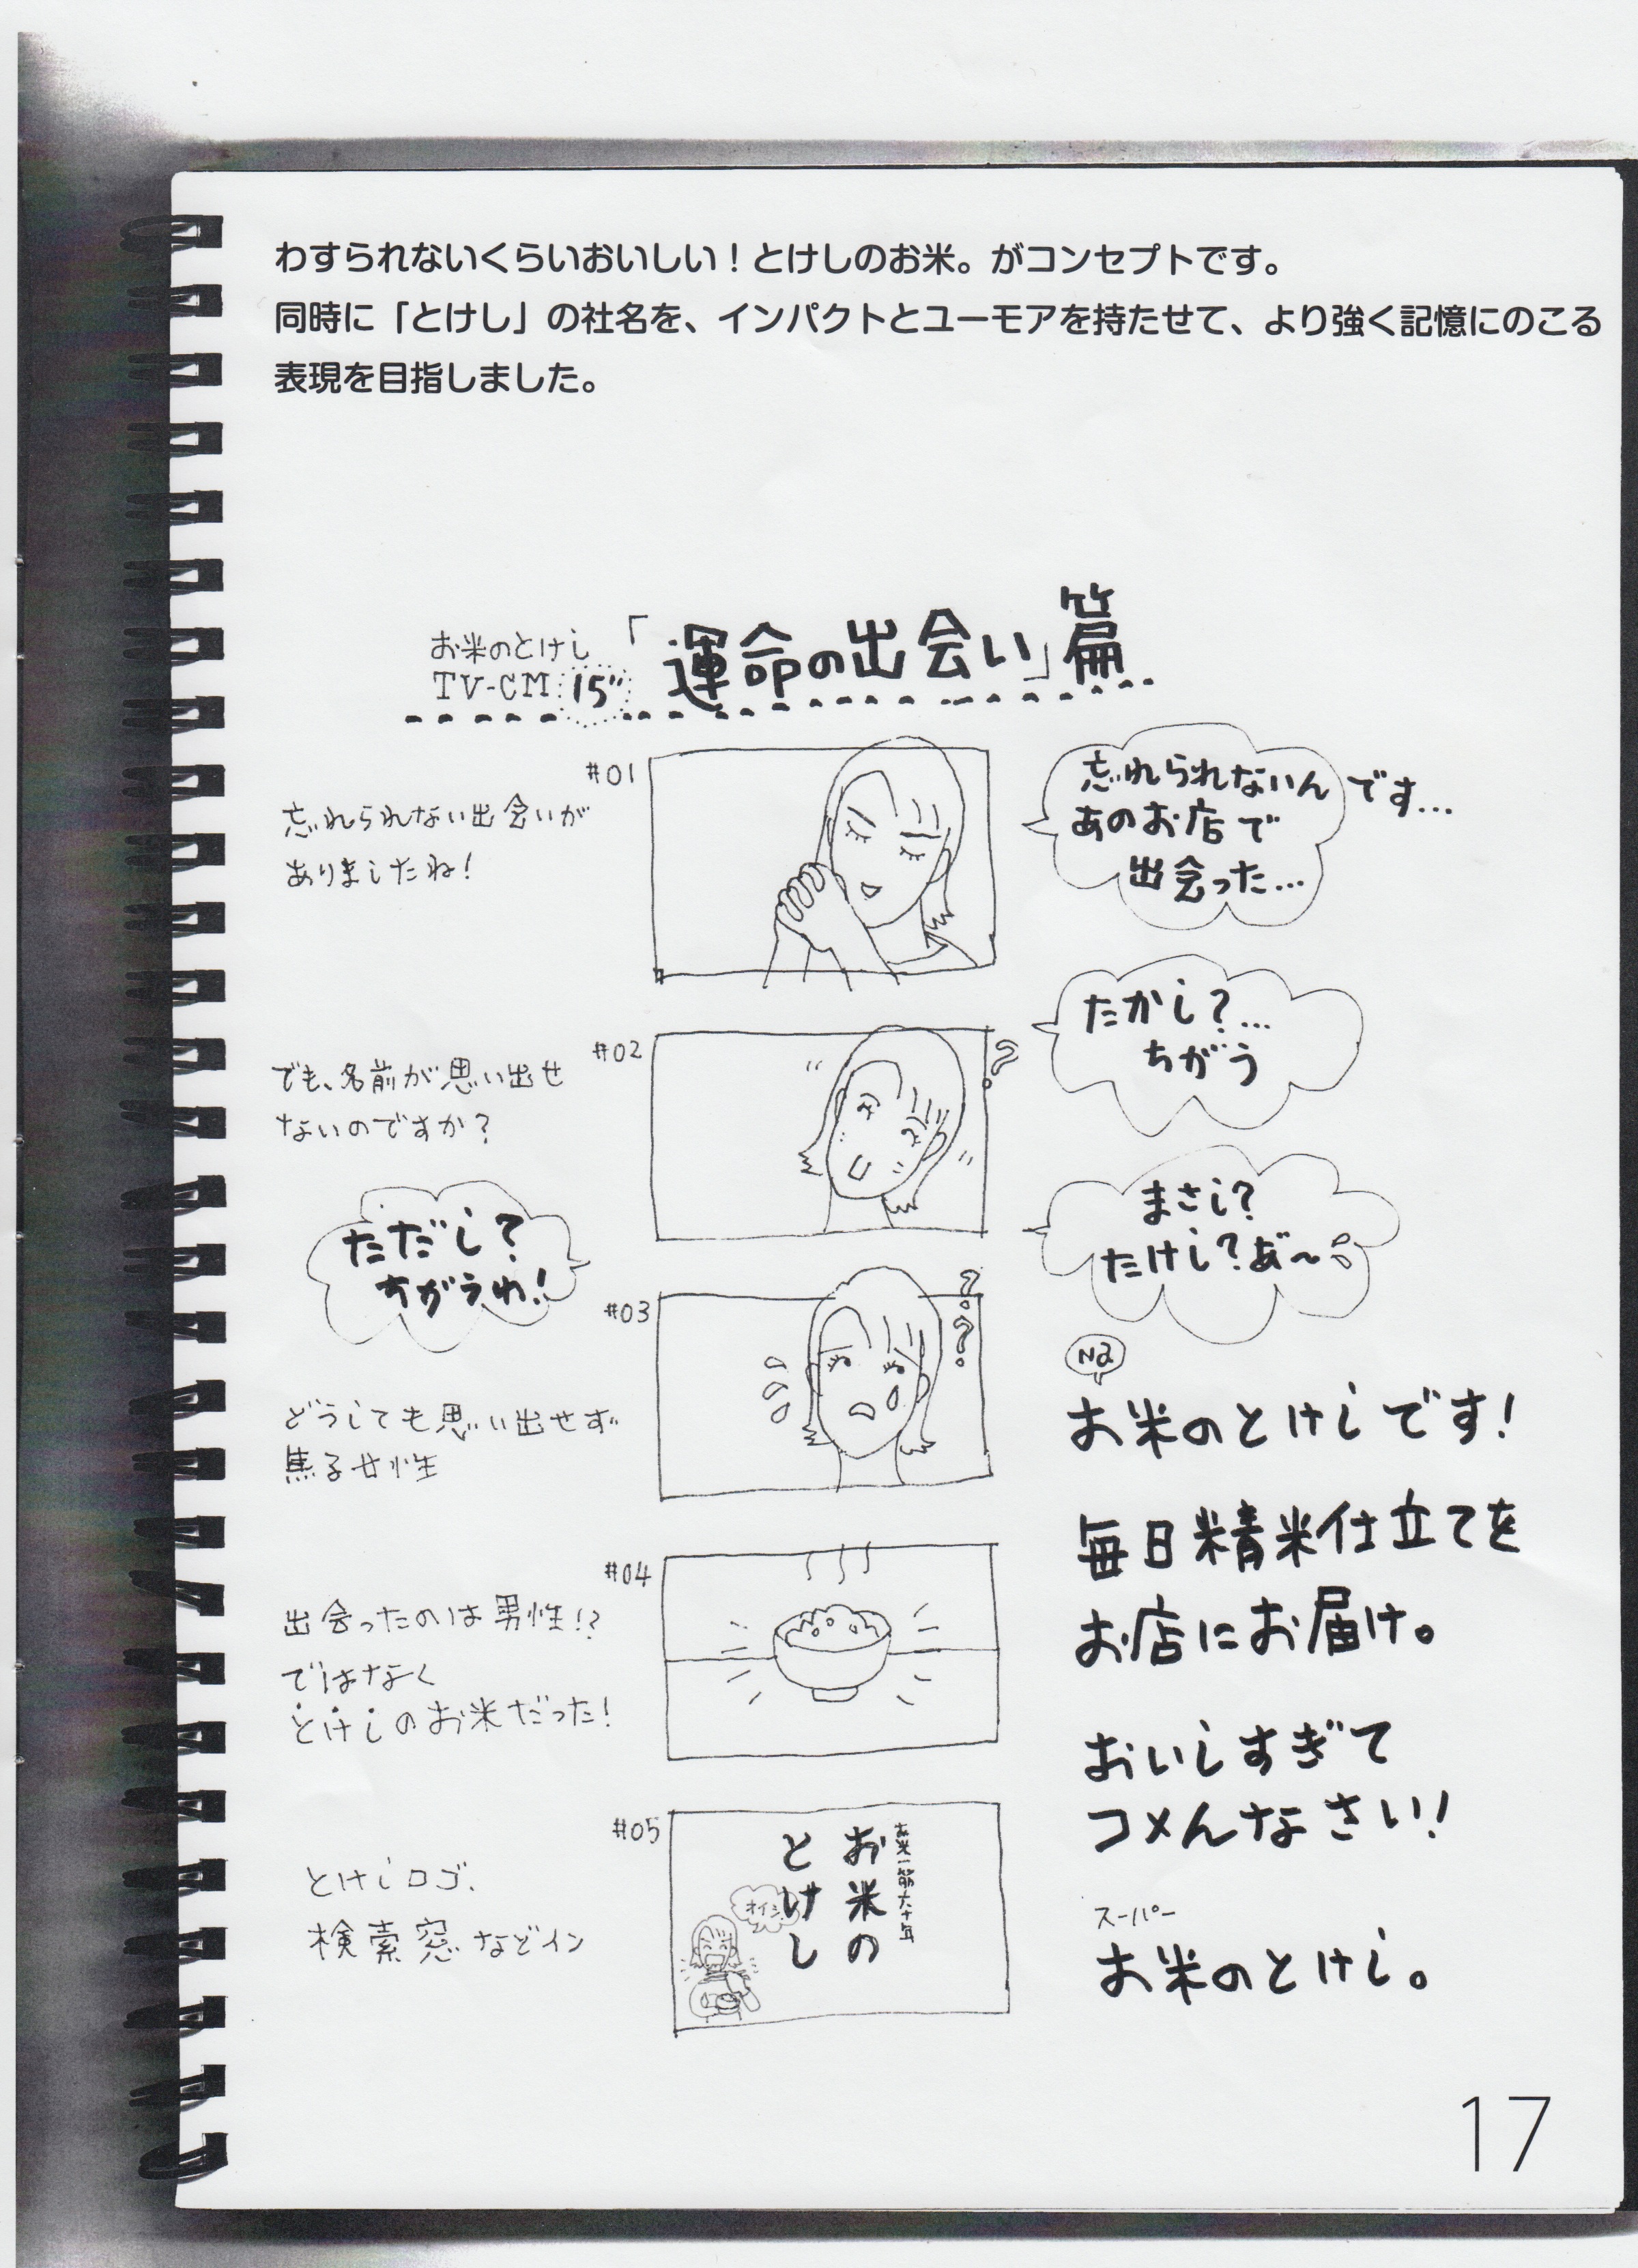 わすられないくらいおいしい！とけしのお米。がコンセプトです。
同時に「とけし」の社名を、インパクトとユーモアを持たせて、より強く記憶にのこる
表現を目指しました。
お米のとけし
TV-CM 15"
「運命の出会い」篇
#01
忘れられない出会いが
ありましたね!
忘れられないんです...
あのお店で
出会った...
#02
でも、名前が思い出せ
ないのですか?
たかし?...
ちがう
まさし?
たけし?あ゛〜
ただし?
ちがうわ!
#03
どうしても思い出せず
焦る女性
Na
お米のとけしです!
毎日精米仕立てを
お店にお届け。
#04
出会ったのは男性!?
ではなく
とけしのお米だった!
おいしすぎて
コメんなさい!
#05
とけしロゴ、
検索窓などイン
お米一筋六十年
お米の
とけし
オイシ
スーパー
お米のとけし。
17